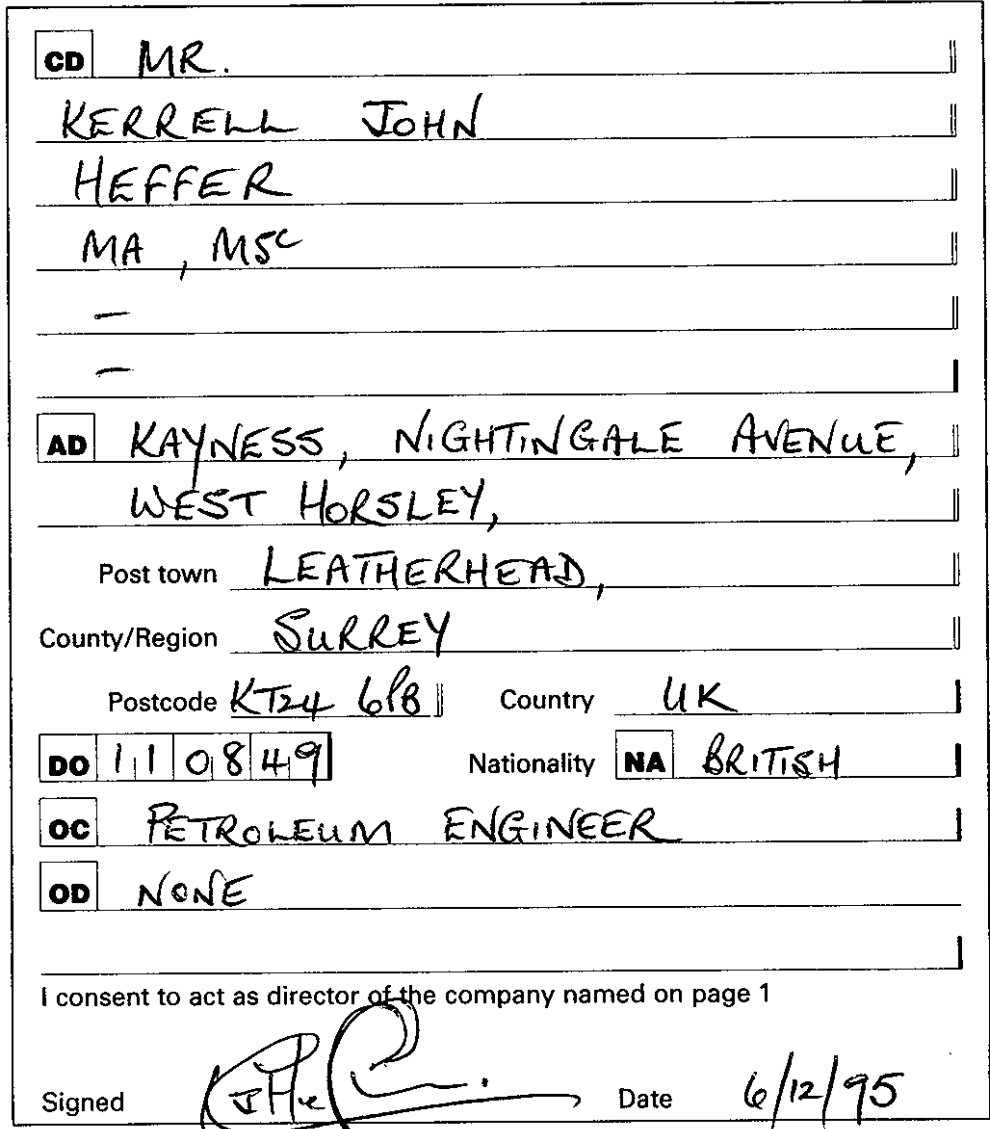 CD MR.
KERRELL JOHN
HEFFER
MA, MSC
—
—
AD KAYNESS, NIGHTINGALE AVENUE,
WEST HORSLEY,
Post town LEATHERHEAD,
County/Region SURREY
Postcode KT24 6PB Country UK
DO 110849 Nationality NA BRITISH
OC PETROLEUM ENGINEER
OD NONE
I consent to act as director of the company named on page 1
Signed Date 6/12/95